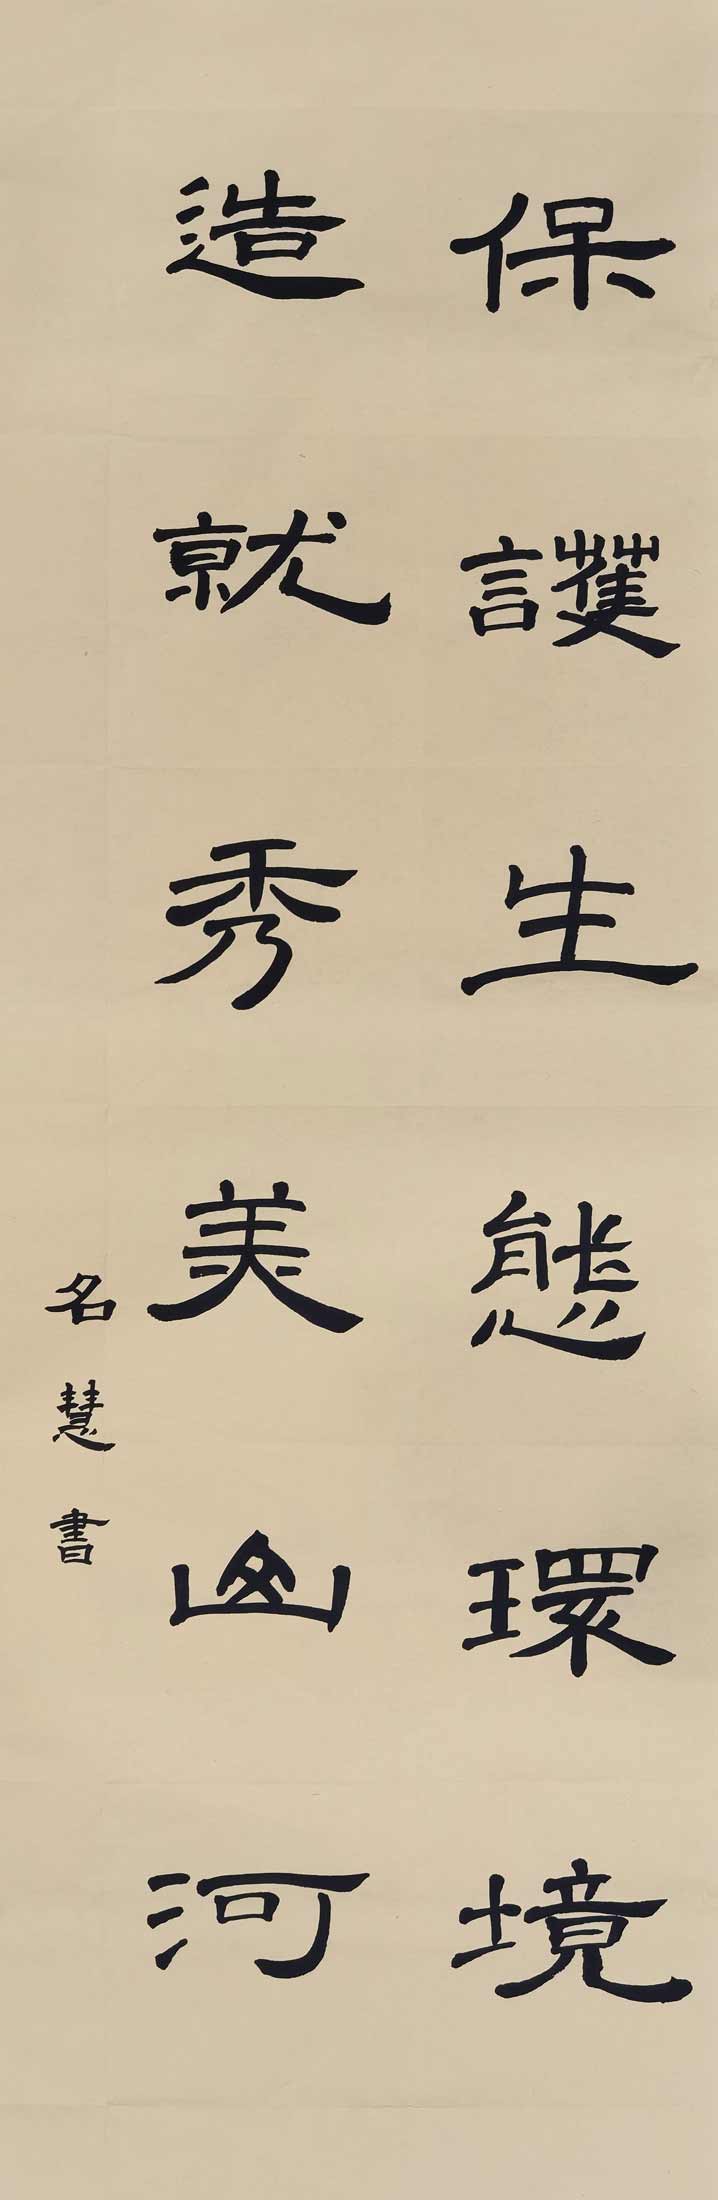 保護生態環境
造就秀美山河
名慧書